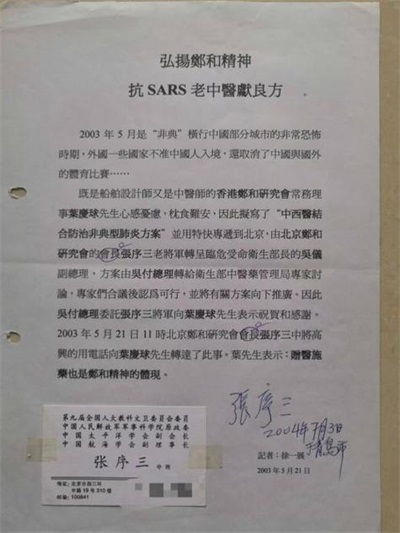 弘揚鄭和精神
抗 SARS 老中醫獻良方
2003 年 5 月是“非典”橫行中國部分城市的非常恐怖
時期，外國一些國家不准中國人入境，還取消了中國與國外
的體育比賽……
既是船舶設計師又是中醫師的香港鄭和研究會常務理
事葉慶球先生心感憂慮，枕食難安，因此擬寫了“中西醫結
合防治非典型肺炎方案”並用特快專遞到北京，由北京鄭和
研究會的會長張序三老將軍轉呈臨危受命衛生部長的吳儀
副總理，方案由吳付總理轉給衛生部中醫藥管理局專家討
論，專家們合議後認爲可行，並將有關方案向下推廣。因此
吳付總理委託張序三將軍向葉慶球先生表示祝賀和感謝。
2003 年 5 月 21 日 11 時北京鄭和研究會會長張序三中將高
興的用電話向葉慶球先生轉達了此事。葉先生表示：贈醫施
藥也是鄭和精神的體現。
張序三
2004年7月3日
于青島市
記者：徐一
2003 年 5 月 21 日
第九届全国人大教科文卫委员会委员
中国人民解放军军事科学院原政委
中国太平洋学会副会长
中国航海学会副理事长
张序三 中将
地址：北京市西三环
中路 19 号 310 信
邮编：100841